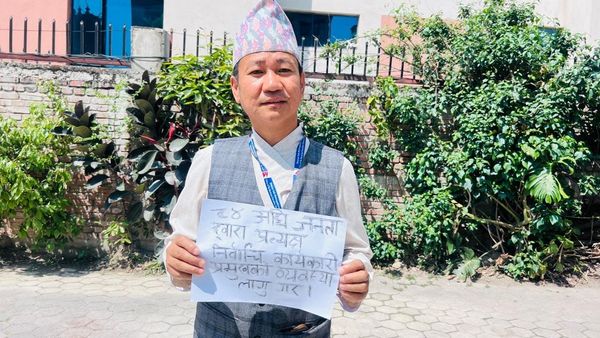 ८४ अघि जनता
द्वारा प्रत्यक्ष
निर्वाचित कार्यकारी
प्रमुखको व्यवस्था
लागु गर।